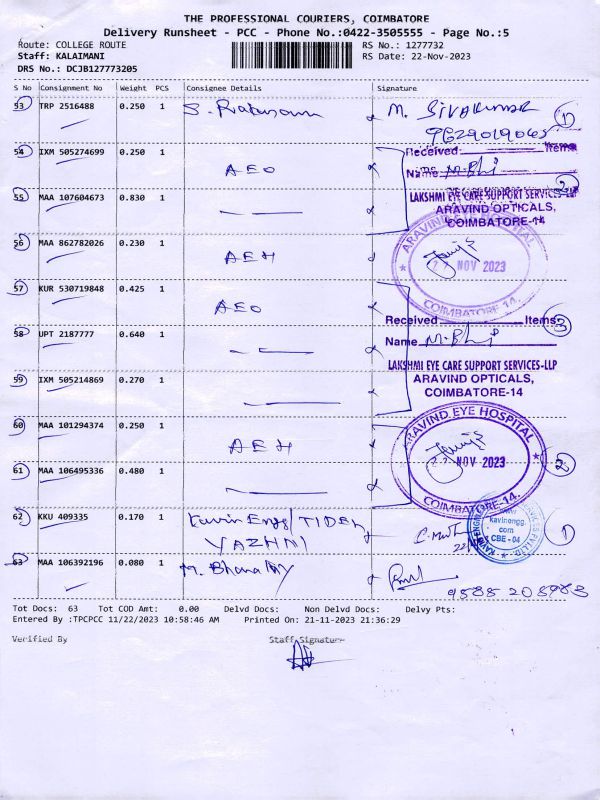 THE PROFESSIONAL COURIERS, COIMBATORE
Delivery Runsheet - PCC - Phone No.:0422-3505555 - Page No.:5
Route: COLLEGE ROUTE
RS No.: 1277732
Staff: KALAIMANI
RS Date: 22-Nov-2023
DRS No.: DCJB127773205
S No Consignment No Weight PCS Consignee Details Signature
53 TRP 2516488 0.250 1 M. SIVAKUMAR 1
54 IXM 505274699 0.250 1 AEO
Received Items
Name
55 MAA 107604673 0.830 1 2
LAKSHMI EYE CARE SUPPORT SERVICES-LLP
ARAVIND OPTICALS,
COIMBATORE-14
56 MAA 862782026 0.230 1 AEH
ARAVIND EYE HOSPITAL
NOV 2023
COIMBATORE-14.
57 KUR 530719848 0.425 1 AEO
Received Items 3
58 UPT 2187777 0.640 1
Name
LAKSHMI EYE CARE SUPPORT SERVICES-LLP
59 IXM 505214869 0.270 1
ARAVIND OPTICALS,
COIMBATORE-14
60 MAA 101294374 0.250 1 AEH
ARAVIND EYE HOSPITAL
61 MAA 106495336 0.480 1 2
NOV 2023
COIMBATORE-14.
62 KKU 409335 0.170 1 Kavin Engg/TIDEL 1
YAZHNI
kavinengg.
com
CBE - 04
63 MAA 106392196 0.080 1 M. Bharathy
9585 203983
Tot Docs: 63 Tot COD Amt: 0.00 Delvd Docs: Non Delvd Docs: Delvy Pts:
Entered By :TPCPCC 11/22/2023 10:58:46 AM Printed On: 21-11-2023 21:36:29
Verified By Staff Signature